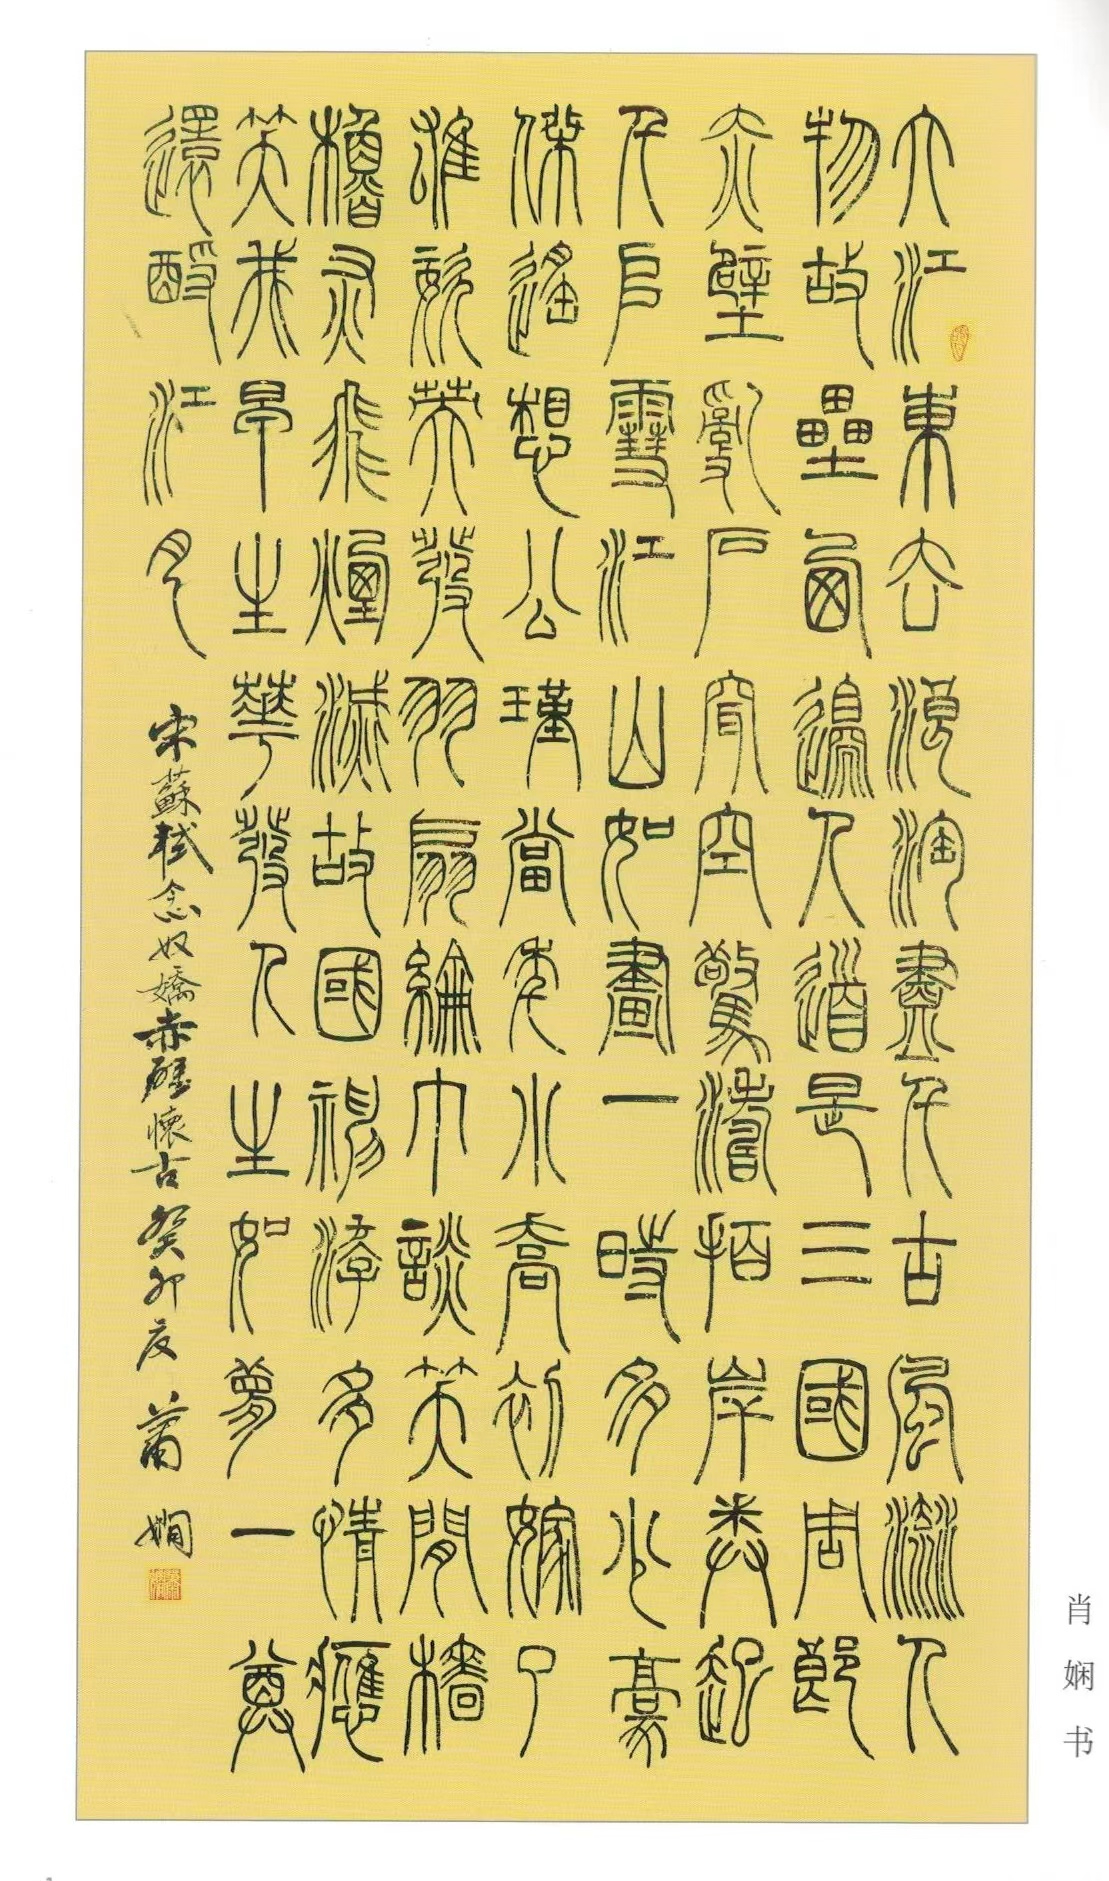 大江東去浪淘盡千古風流人
物故壘西邊人道是三國周郎
赤壁亂石穿空驚濤拍岸卷起
千𠂤雪江山如畫一時多少豪
傑遙想公瑾當年小喬初嫁了
雄姿英發羽扇綸巾談笑間檣
櫓灰飛煙滅故國神游多情應
笑我早生華發人生如夢一尊
還酹江月
宋蘇軾念奴嬌赤壁懷古癸卯夏蕭嫻
肖娴书